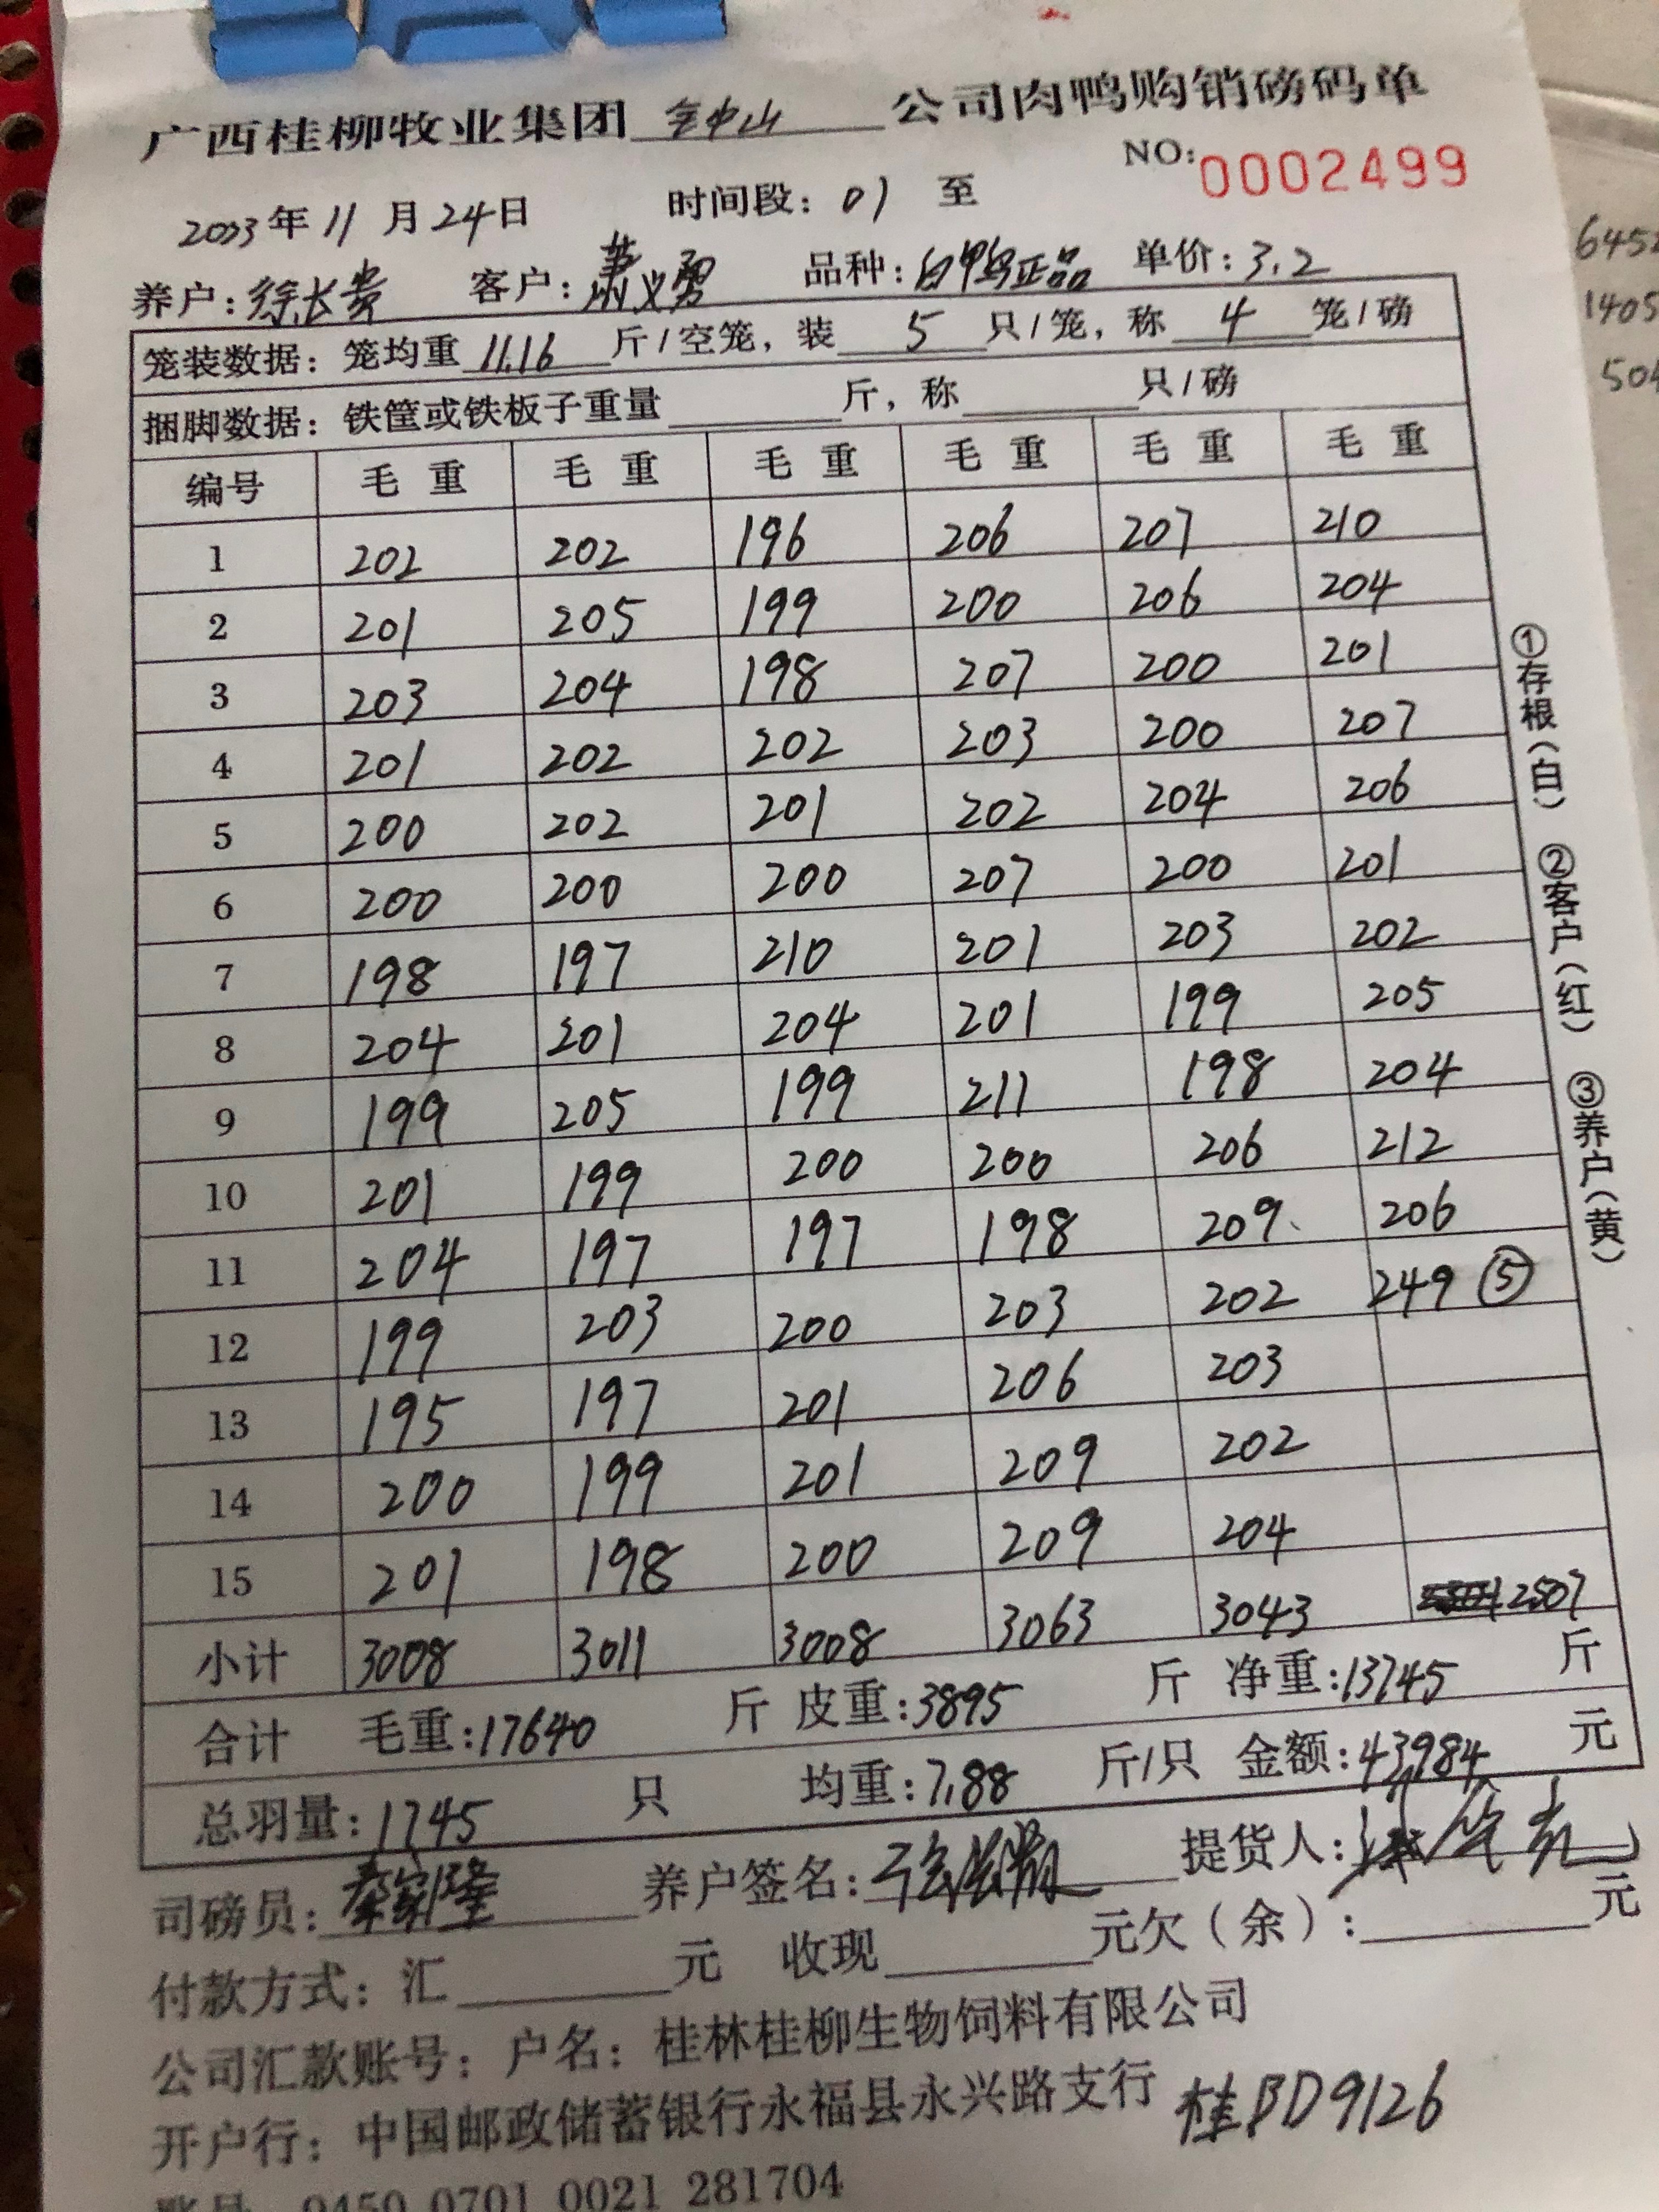 广西桂柳牧业集团 金中山 公司肉鸭购销磅码单
NO: 0002499
2023年 11 月 24日 时间段: 01 至
养户: 徐长贵 客户: 萧义勇 品种: 白鸭正品 单价: 3.2
笼装数据: 笼均重 11.16 斤/空笼, 装 5 只/笼, 称 4 笼/磅
捆脚数据: 铁筐或铁板子重量 斤, 称 只/磅
编号 毛重 毛重 毛重 毛重 毛重 毛重
1 202 202 196 206 207 210
2 201 205 199 200 206 204
3 203 204 198 207 200 201
4 201 202 202 203 200 207
5 200 202 201 202 204 206
6 200 200 200 207 200 201
7 198 197 210 201 203 202
8 204 201 204 201 199 205
9 199 205 199 211 198 204
10 201 199 200 200 206 212
11 204 197 197 198 209 206
12 199 203 200 203 202 249 ⑤
13 195 197 201 206 203
14 200 199 201 209 202
15 201 198 200 209 204
小计 3008 3011 3008 3063 3043 2507
合计 毛重: 17640 斤 皮重: 3895 斤 净重: 13745 斤
总羽量: 1745 只 均重: 7.88 斤/只 金额: 43984 元
司磅员: 秦家隆 养户签名: 提货人:
付款方式: 汇 元 收现 元欠(余): 元
公司汇款账号: 户名: 桂林桂柳生物饲料有限公司
开户行: 中国邮政储蓄银行永福县永兴路支行 桂BD9126
账号 9450 0701 0021 281704
①存根(白) ②客户(红) ③养户(黄)
645
1405
504